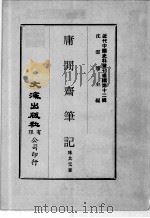 近代中國史料叢刊第十二輯
沈雲龍主編
庸閒齋筆記
陳其元著
文海出版社有限公司印行